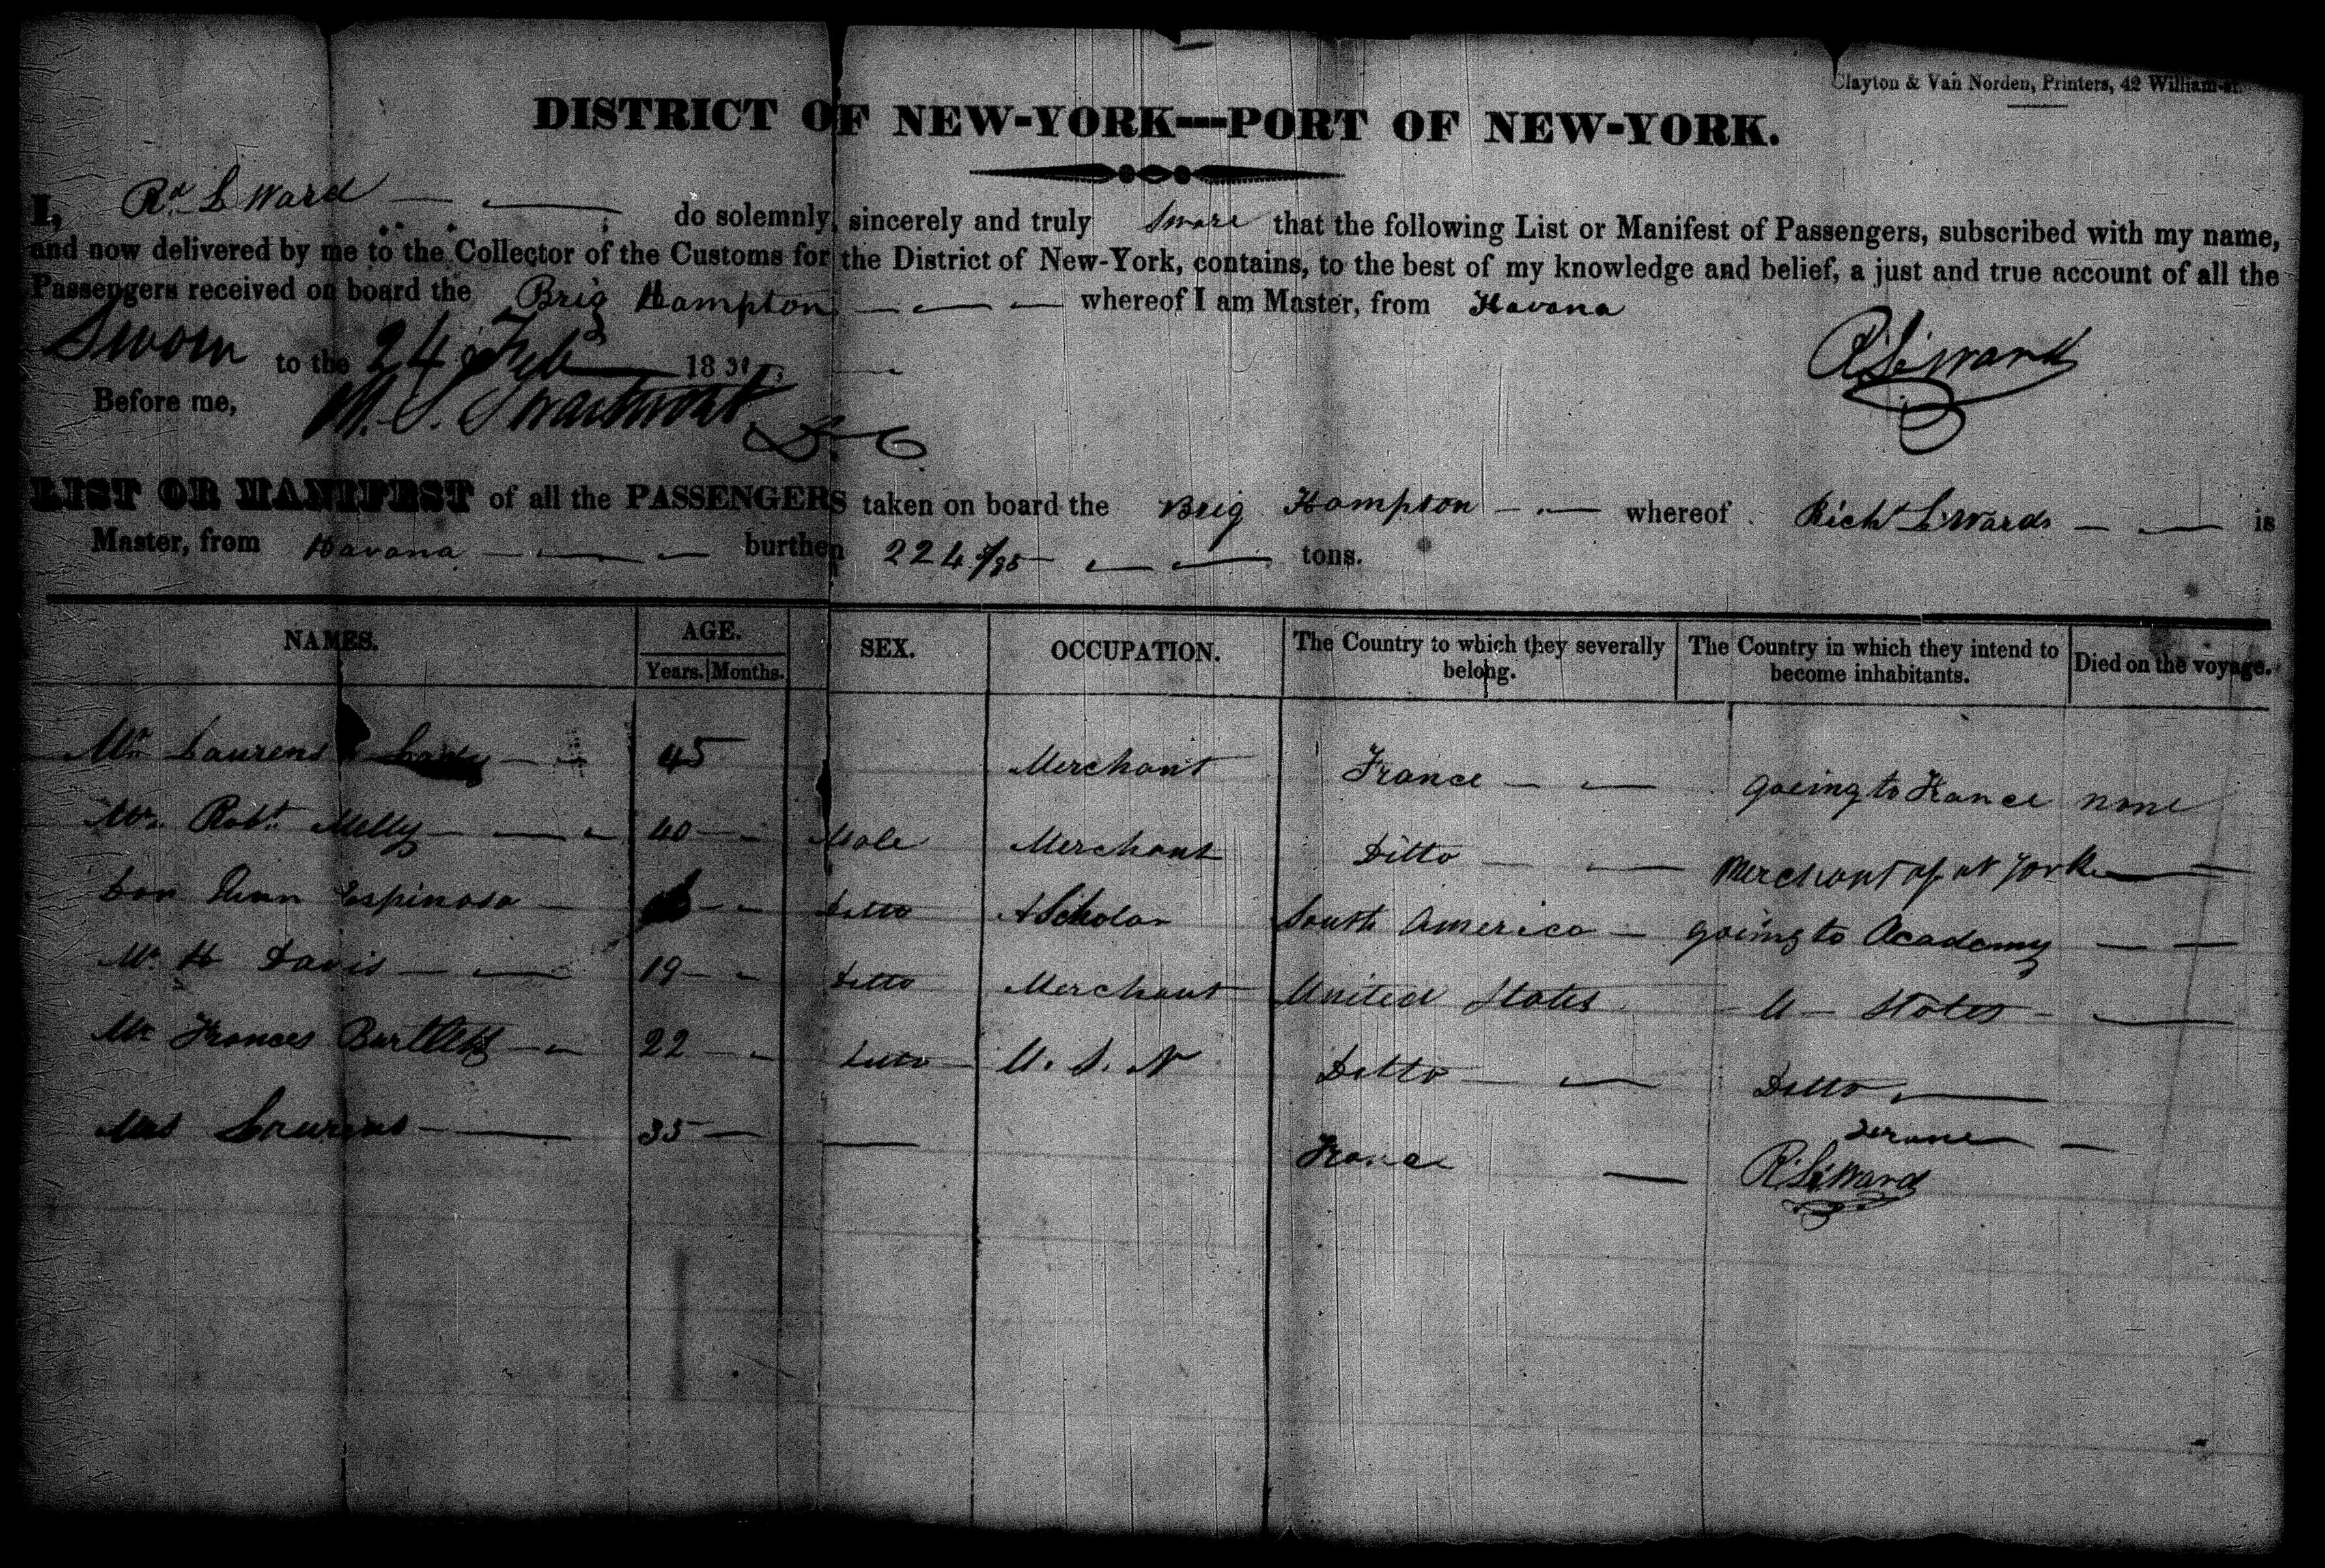 Clayton & Van Norden, Printers, 42 William-st.
DISTRICT OF NEW-YORK---PORT OF NEW-YORK.
I, Rd L Ward do solemnly, sincerely and truly Sware that the following List or Manifest of Passengers, subscribed with my name,
and now delivered by me to the Collector of the Customs for the District of New-York, contains, to the best of my knowledge and belief, a just and true account of all the
Passengers received on board the Brig Hampton whereof I am Master, from Havana
Sworn to the 24 Feb 1831
R. L. Ward
Before me, M. S. Swartwout
D. C.
LIST OR MANIFEST of all the PASSENGERS taken on board the Brig Hampton whereof Richd L Wards is
Master, from Havana burthen 224 /95 tons.
NAMES. AGE. Years. Months. SEX. OCCUPATION. The Country to which they severally belong. The Country in which they intend to become inhabitants. Died on the voyage.
Mr Laurens 45 Merchant France goeing to France none
Mr. Robt. Melly 40 Male Merchant Ditto Merchant of N York
Don Juan Espinosa Ditto A Scholar South America going to Academy
Mr H Davis 19 Ditto Merchant United States U States
Mr Frances Bartlett 22 Ditto U. S. N Ditto Ditto
Mrs Laurens 35 France
R. L. Ward